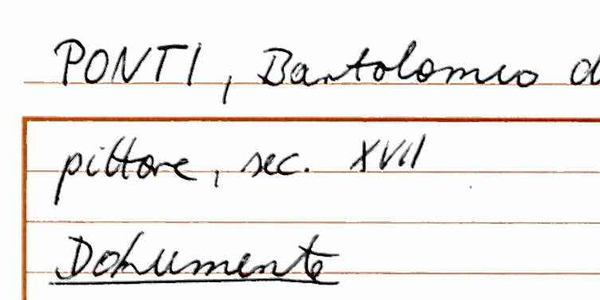 PONTI, Bartolomeo d
pittore, sec. XVII
Dokumente